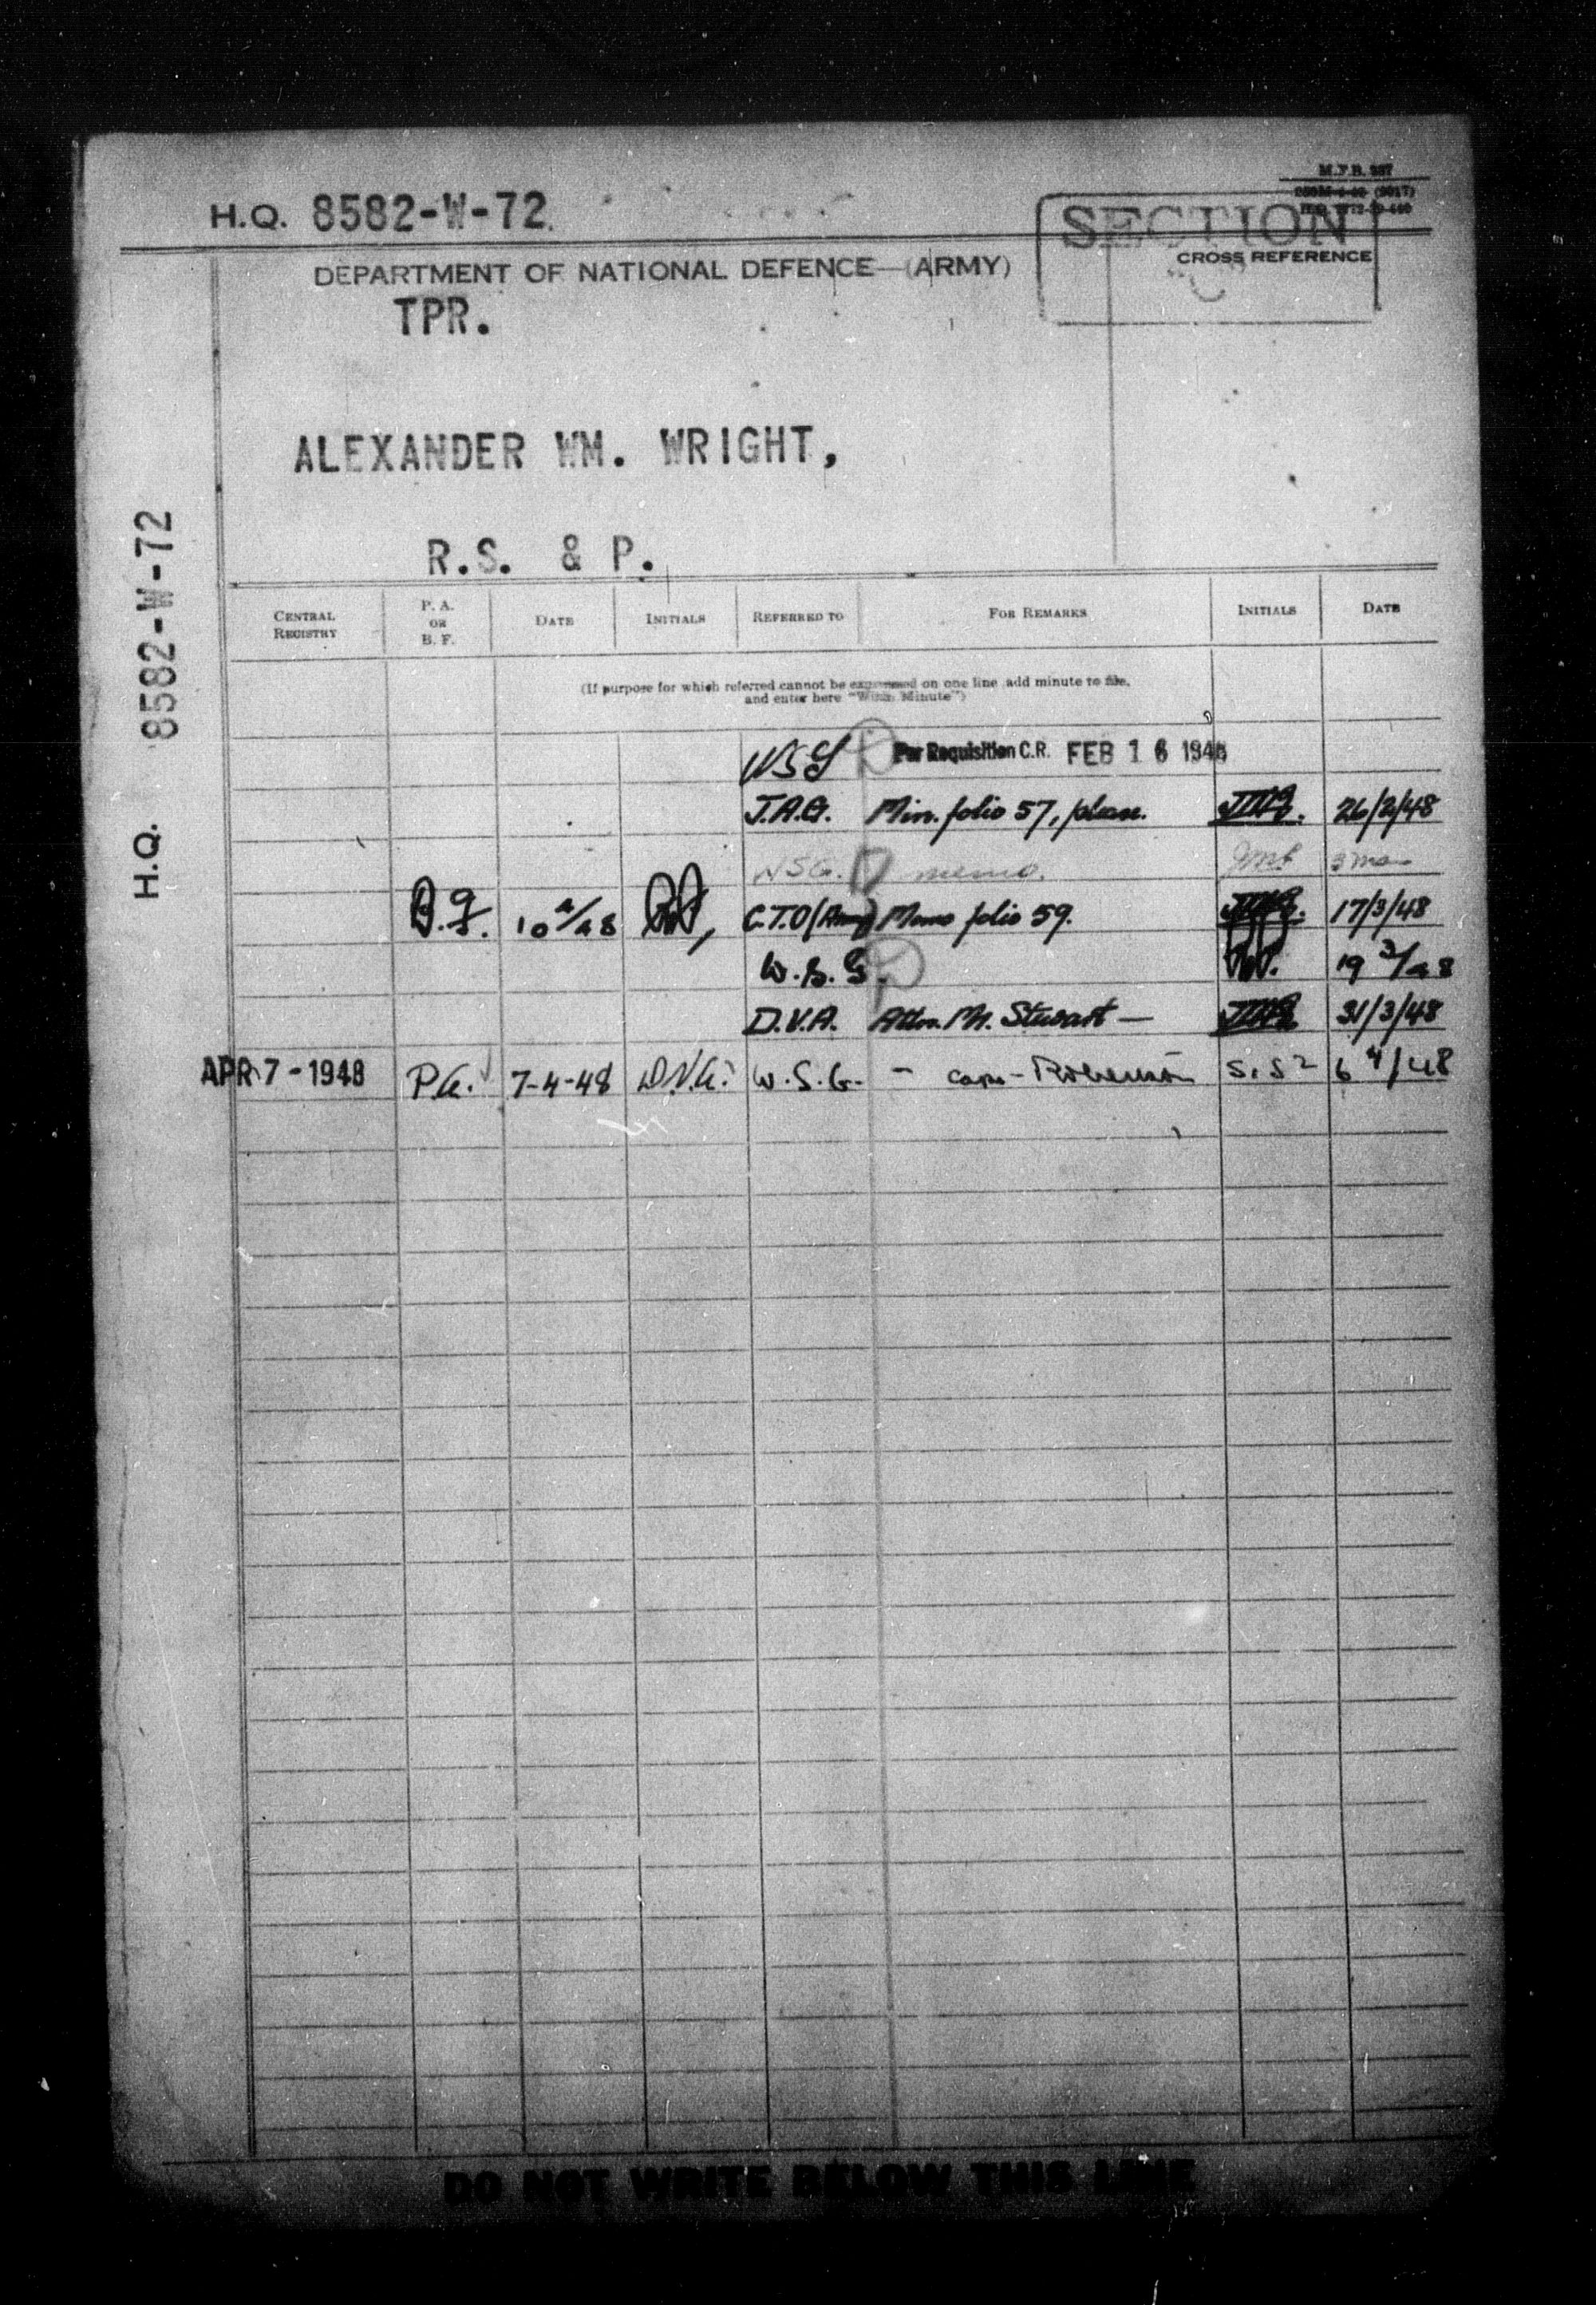 M.F.B. 887
H.Q. 8582-W-72
SECTION
DEPARTMENT OF NATIONAL DEFENCE—(ARMY)
CROSS REFERENCE
TPR.
ALEXANDER WM. WRIGHT,
R.S. & P.
H.Q. 8582-W-72
CENTRAL REGISTRY P. A. OR B. F. DATE INITIALS REFERRED TO FOR REMARKS INITIALS DATE
(If purpose for which referred cannot be expressed on one line add minute to file,
and enter here "With Minute")
WSG Per Requisition C.R. FEB 16 1948
J.A.G. Min. folio 57, please. 26/2/48
WSG. memo.
B.F. 10 4/48 C.T.O (Army) Memo folio 59. 17/3/48
W.S.G. 19 3/48
D.V.A. Attn. Mr. Stewart — 31/3/48
APR 7 - 1948 P.A. 7-4-48 W.S.G. - 6 4/48
DO NOT WRITE BELOW THIS LINE